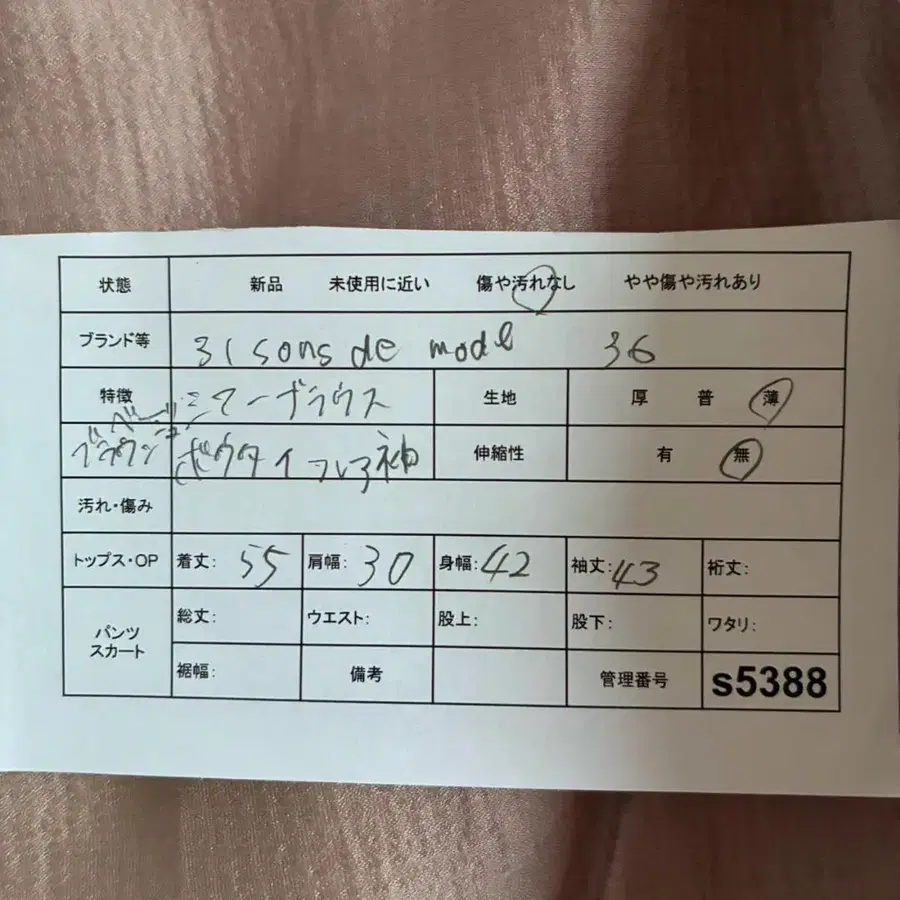 状態 新品 未使用に近い 傷や汚れなし やや傷や汚れあり
ブランド等 31 sons de mode 36
特徴 シアーブラウス 生地 厚 普 薄
ブラウン ボウタイ フレア袖 伸縮性 有 無
汚れ・傷み
トップス・OP 着丈: 55 肩幅: 30 身幅: 42 袖丈: 43 裄丈:
パンツ スカート
総丈: ウエスト: 股上: 股下: ワタリ:
裾幅: 備考 管理番号 s5388